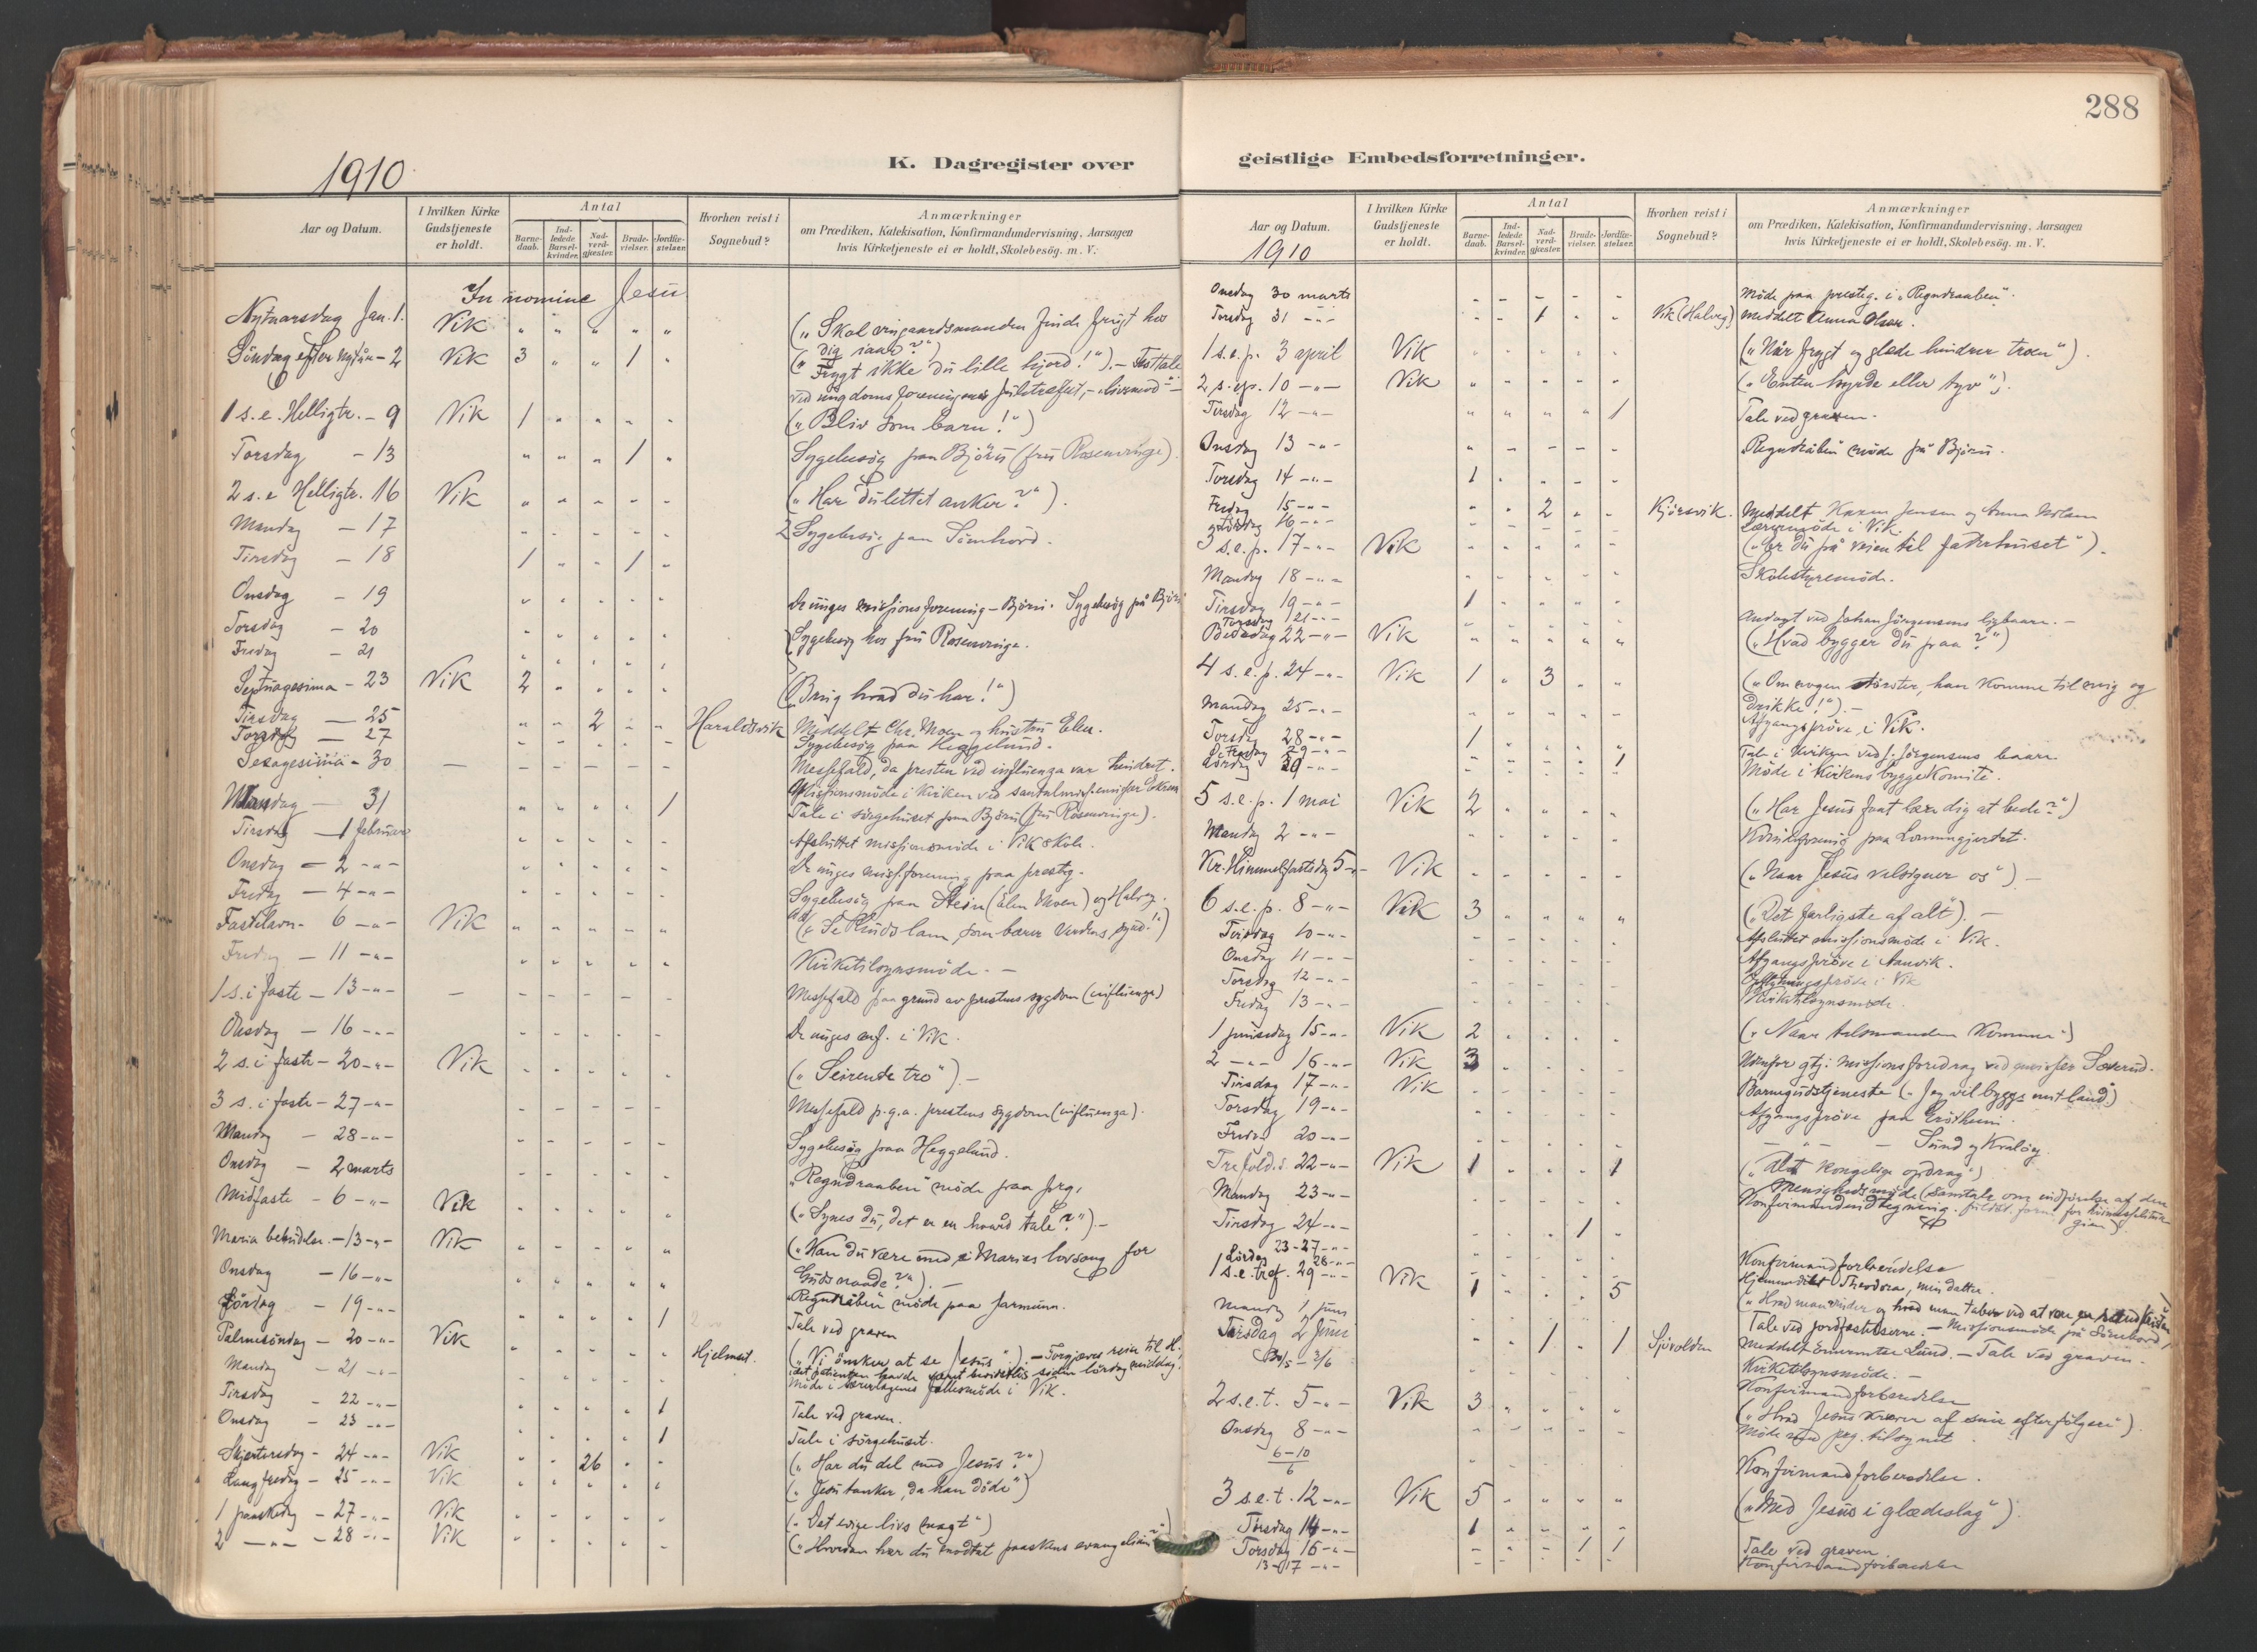 288
1910
K. Dagregister over
geistlige Embedsforretninger.
Aar og Datum.
I hvilken Kirke Gudstjeneste er holdt.
Antal
Barne-daab.
Ind-ledede Barsel-kvinder.
Nad-verd-gjæster.
Brude-vielser.
Jordfæ-stelser.
Hvorhen reist i Sognebud?
Anmærkninger
om Prædiken, Katekisation, Konfirmandundervisning, Aarsagen
hvis Kirketjeneste ei er holdt, Skolebesög. m. V.
In nomine Jesu
Nytaarsdag Jan. 1. Vik " " " " " („Skal vingaardsmanden finde frugt hos
dig iaar?")
Söndag efter nytår - 2 Vik 3 " " 1 " („Frygt ikke du lille hjord!"). - Festtale
ved ungdomsforeningens juletræfest,
1 s. e. Helligtr. - 9 Vik 1 " " " " („Bliv som barn!")
Torsdag - 13 " " " 1 " Sygebesög paa Björn (fru Rosenvinge).
2 s. e Helligtr. 16 Vik " " " " " („Har du lettet anker?").
Mandag - 17 " " " " " 2 Sygebesög paa
Tirsdag - 18 1 " " 1 "
Onsdag - 19 " " " " " De unges missionsforening - Björn. Sygebesög på Björn
Torsdag - 20 " " " " " Sygebesög hos fru Rosenvinge.
Fredag - 21 " " " " "
Septuagesima - 23 Vik 2 " " " " („Brug hvad du har!")
Tirsdag - 25 " " 2 " " Haraldsvik Meddelt Chr. Moen og hustru Elen.
Torsdag - 27 " " " " " Sygebesög paa Heggelund.
Sexagesima - 30 - - - - - - Messefald, da presten ved influenza var hindret.
Missionsmöde i kirken ved
Mandag - 31 " " " " 1 Tale i sörgehuset paa Björn (fru Rosenvinge).
Tirsdag - 1 februar " " " " " Afsluttet missionsmöde i Vik skole.
Onsdag - 2 -"- " " " " " De unges miss.forening paa prestg.
Fredag - 4 -"- " " " " " Sygebesög paa Stein (Elen Moen) og Halveg.
Fastelavn - 6 -"- Vik " " " " " („Se Guds lam, som bærer verdens synd!")
Fredag - 11 -"- " " " " " Kirketilsynsmöde. -
1 s. i faste - 13 -"- - - - - - - Messefald paa grund av prestens sygdom (influenza)
Onsdag - 16 -"- " " " " " De unges i Vik.
2 s. i faste - 20 -"- Vik " " " " " („Seirende tro"). -
3 s. i faste - 27 -"- - - - - - Messefald p. g. a. prestens sygdom (influenza).
Mandag - 28 -"- " " " " " Sygebesög paa Heggelund.
Onsdag - 2 marts " " " " " „Regndraaben" möde paa prg.
Midfaste - 6 -"- Vik " " " " " („Synes du, det er en haard tale?") -
Maria bebudelse - 13 -"- Vik " " " " " („Kan du være med i Marias lovsang for
Guds naade?"). -
Onsdag - 16 -"- " " " " " „Regndråben" möde paa
Lördag - 19 -"- " " " " 1 Tale ved graven
Palmesöndag - 20 -"- Vik " " " " " Hjelmset. („Vi önsker at se Jesus"). - Forgjæves reise til H.
idet patienten havde været bevidstlös siden lördag middag.
Mandag - 21 -"- " " " " " Möde i lærerlagenes fællesmöde i Vik.
Tirsdag - 22 -"- " " " " 1 Tale ved graven.
Onsdag - 23 -"- " " " " 1 Tale i sörgehuset.
Skjærtorsdag - 24 -"- Vik " " 26 " " („Har du del med Jesus?")
Langfredag - 25 -"- Vik " " " " " („Jesu tanker, da han döde")
1 paaskedag - 27 -"- Vik " " " " " („Det evige livs magt")
2 -"- - 28 -"- Vik " " " " " („Hvordan har du modtat paaskens evangelium?")
Aar og Datum.
1910
I hvilken Kirke Gudstjeneste er holdt.
Antal
Barne-daab.
Ind-ledede Barsel-kvinder.
Nad-verd-gjæster.
Brude-vielser.
Jordfæ-stelser.
Hvorhen reist i Sognebud?
Anmærkninger
om Prædiken, Katekisation, Konfirmandundervisning, Aarsagen
hvis Kirketjeneste ei er holdt, Skolebesög. m. V.
Onsdag 30 marts - - - - - Möde paa prestg. i „Regndraaben".
Torsdag 31 -"- - - 1 - - Vik (Halveg) Meddelt Anna Olsen.
1 s. e. p. 3 april Vik " " " " " („Når frygt og glæde hindrer troen").
2 s. e. p. 10 -"- Vik " " " " " („Enten hyrde eller tyv").
Tirsdag 12 -"- " " " " 1 Tale ved graven.
Onsdag 13 -"- " " " " " „Regndråben" möde på Björn.
Torsdag 14 -"- 1 " " " "
Fredag 15 -"- " " 2 " " Kjörsvik. Meddelt Karen Jensen og Anna
og Lördag 16 -"- - - - - - Lærermöde i Vik.
3 s. e. p. 17 -"- Vik " " " " " („Er du på veien til faderhuset").
Mandag 18 -"- " " " " " Skolestyremöde.
Tirsdag 19 -"- 1 " " " "
Torsdag 21 -"- " " " " " Andagt ved Johan Jörgensens ligbaare. -
Bededag 22 -"- Vik " " " " " („Hvad bygger du paa?")
4 s. e. p. 24 -"- Vik 1 " 3 " " („Om nogen törster, han komme til mig og
drikke!"). -
Mandag 25 -"- " " " " " Afgangspröve i Vik.
Torsdag 28 -"- 1 " " " "
Fredag 29 -"- " " " " 1 Tale i kirken ved J. Jörgensens baare
Lördag 30 -"- - - - - - Möde i kirkens byggekomite.
5 s. e. p. 1 mai Vik 2 " " " " („Har Jesus faat lære dig at bede?")
Mandag 2 -"- " " " " " Kvindeforening paa
Kr. Himmelfartsdag 5 -"- Vik " " " " " („Naar Jesus velsigner os") -
6 s. e. p. 8 -"- Vik 3 " " " " („Det farligste af alt"). -
Tirsdag 10 -"- - - - - - Afsluttet missionsmöde i Vik.
Onsdag 11 -"- - - - - - Afgangspröve i
Torsdag 12 -"- - - - - - i Vik
Fredag 13 -"- - - - - - Kirketilsynsmöde.
1 pinsedag 15 -"- Vik 2 " " " " („Naar talsmanden kommer")
2 -"- 16 -"- Vik 3 " " " " Udenfor gtj: missionsforedrag ved
Tirsdag 17 -"- Vik " " " " " Barnegudstjeneste („Jeg vil bygge mit land")
Torsdag 19 -"- - - - - - Afgangspröve paa
Fredag 20 -"- - - - - - - " - Sund og Kvalöy.
Trefold. s. 22 -"- Vik 1 " " " 1 („Alt kongelige opdrag")
Menighedsmöde (samtale om indförelse af den
Mandag 23 -"- " " " " " Konfirmandindtegning.
Tirsdag 24 -"- " " " 1 "
23-27 -"- - - - - - Konfirmandforberedelse
Lördag 28 -"- Hjemmedöbt Theodora, min datter.
1 s. e. tref. 29 -"- Vik 1 " " " 5 („Hvad man vinder og hvad man taber ved at være en sand kristen")
Mandag 1 juni Tale ved jordfæstelserne. - Missionsmöde på
Torsdag 2 Juni " " 1 " 1 Sjövolden Meddelt Lund. - Tale ved graven.
Kirketilsynsmöde. -
30/5 - 3/6 Konfirmandforberedelse
2 s. e. t. 5 -"- Vik 3 " " " " („Hvad Jesus kræver af sine efterfölgere").
Onsdag 8 -"- - - - - - Möde med tilsynet
6-10/6 - - - - - Konfirmandforberedelse.
3 s. e. t. 12 -"- Vik 5 " " " " („Med Jesus i glædeslag").
Tirsdag 14 -"- 1 " " " "
Torsdag 16 -"- " " " 1 1 Tale ved graven
13-17 -"- - - - - - Konfirmandforberedelse